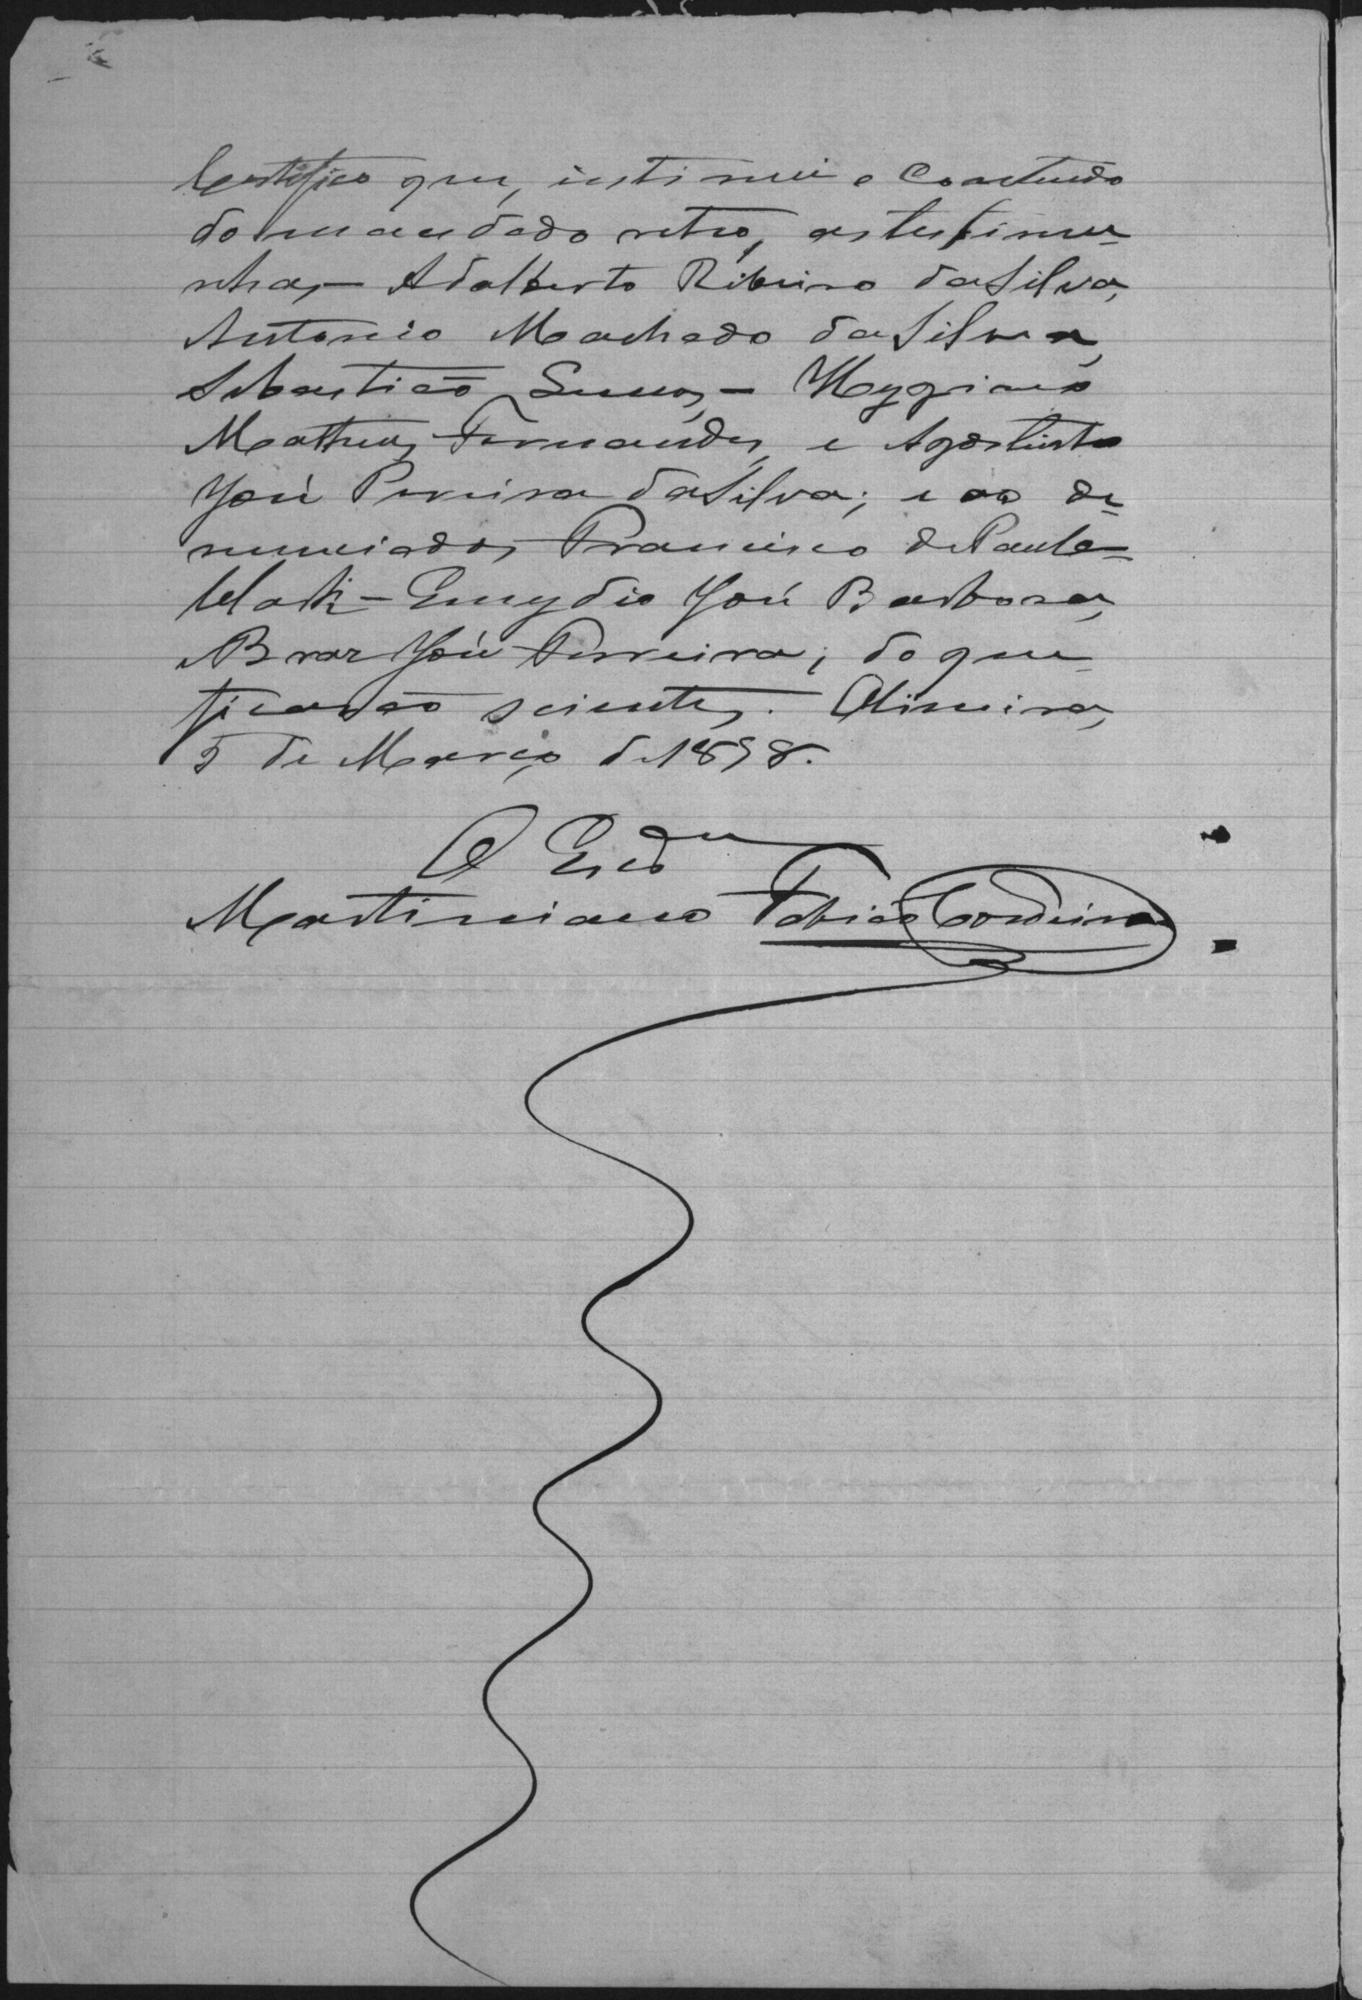 Certifico que, intimei o conteudo
do mandado retro, as testimu-
nhas - Adalberto Ribeiro da Silva,
Antonio Machado da Silva,
Sebastião - Hygiano
Matheus Fernandes, e Agostinho
José Pereira da Silva; e ao de-
nunciados Francisco de Paula
- Emydio José Barbosa,
Braz José Ferreira; do que
ficarão scientes. Oliveira,
5 de Março de 1898.
O Escrivão
Martiniano Tobias Cordeiro